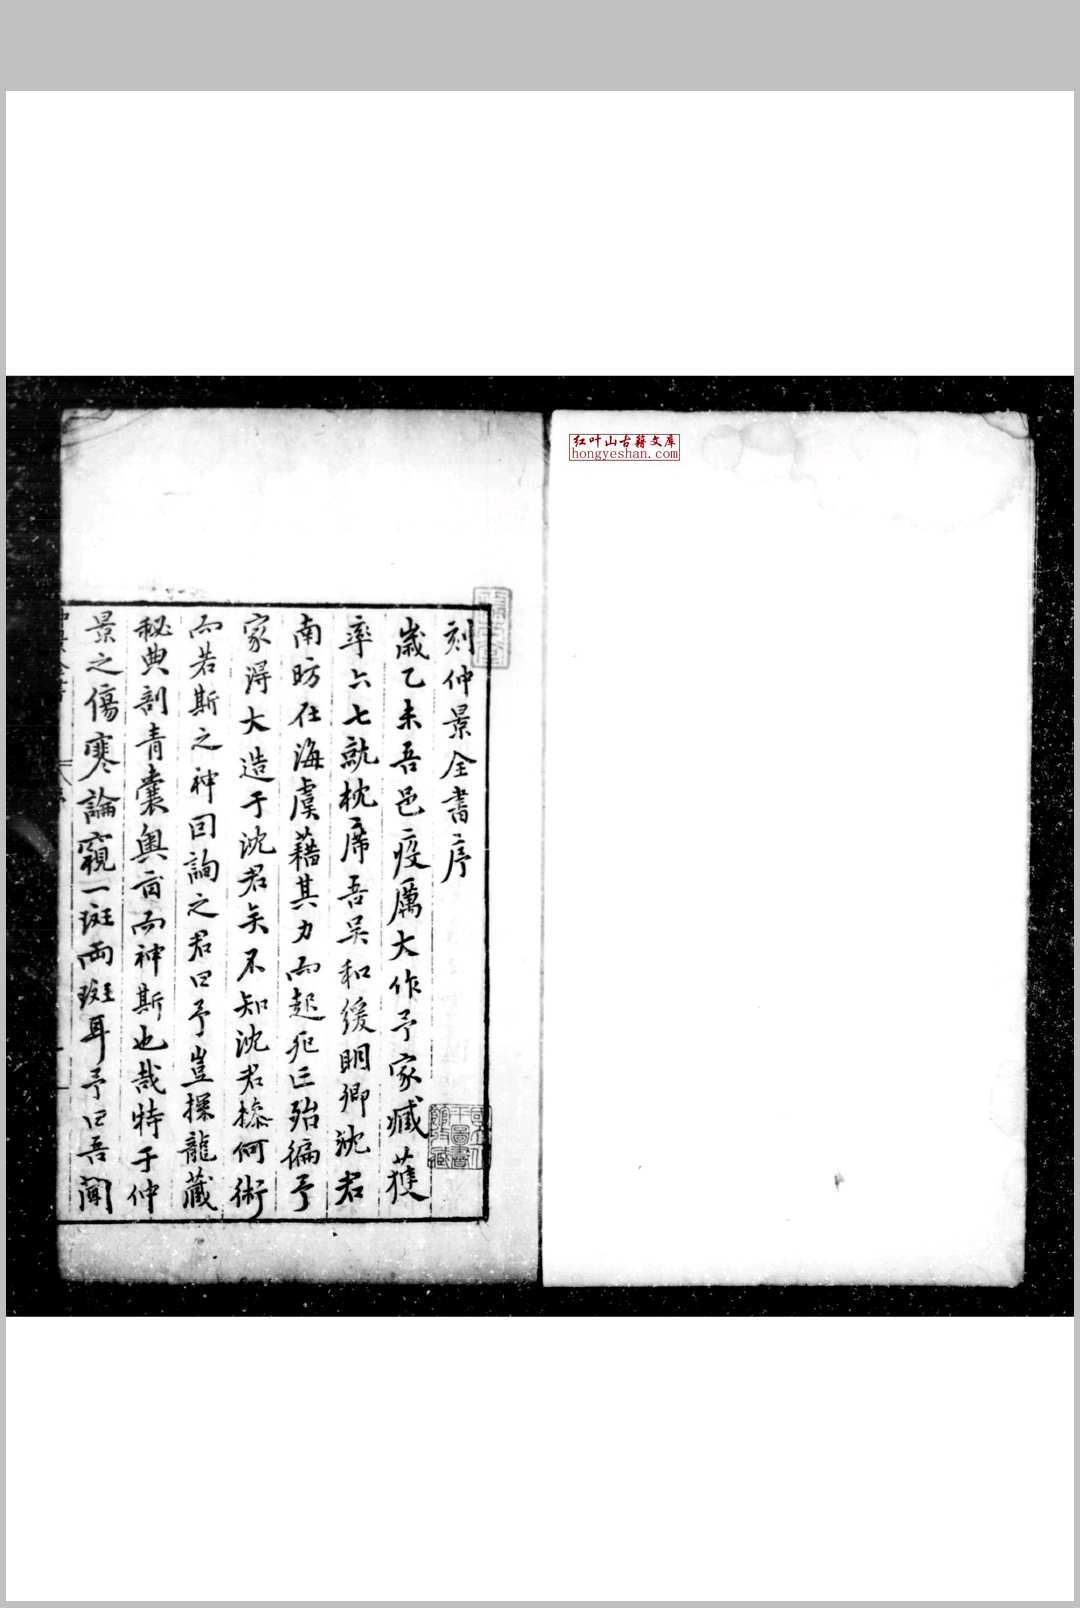 红叶山古籍文库
hongyeshan.com
刻仲景全書序
歲乙未吾邑疫厲大作予家臧獲
率六七就枕席吾吳和緩明卿沈君
南昉在海虞藉其力而起死亡殆徧予
家淂大造于沈君矣不知沈君操何術
而若斯之神因詢之君曰予豈探龍藏
秘典剖青囊奧旨而神斯也哉特于仲
景之傷寒論窺一斑両斑耳予曰吾聞